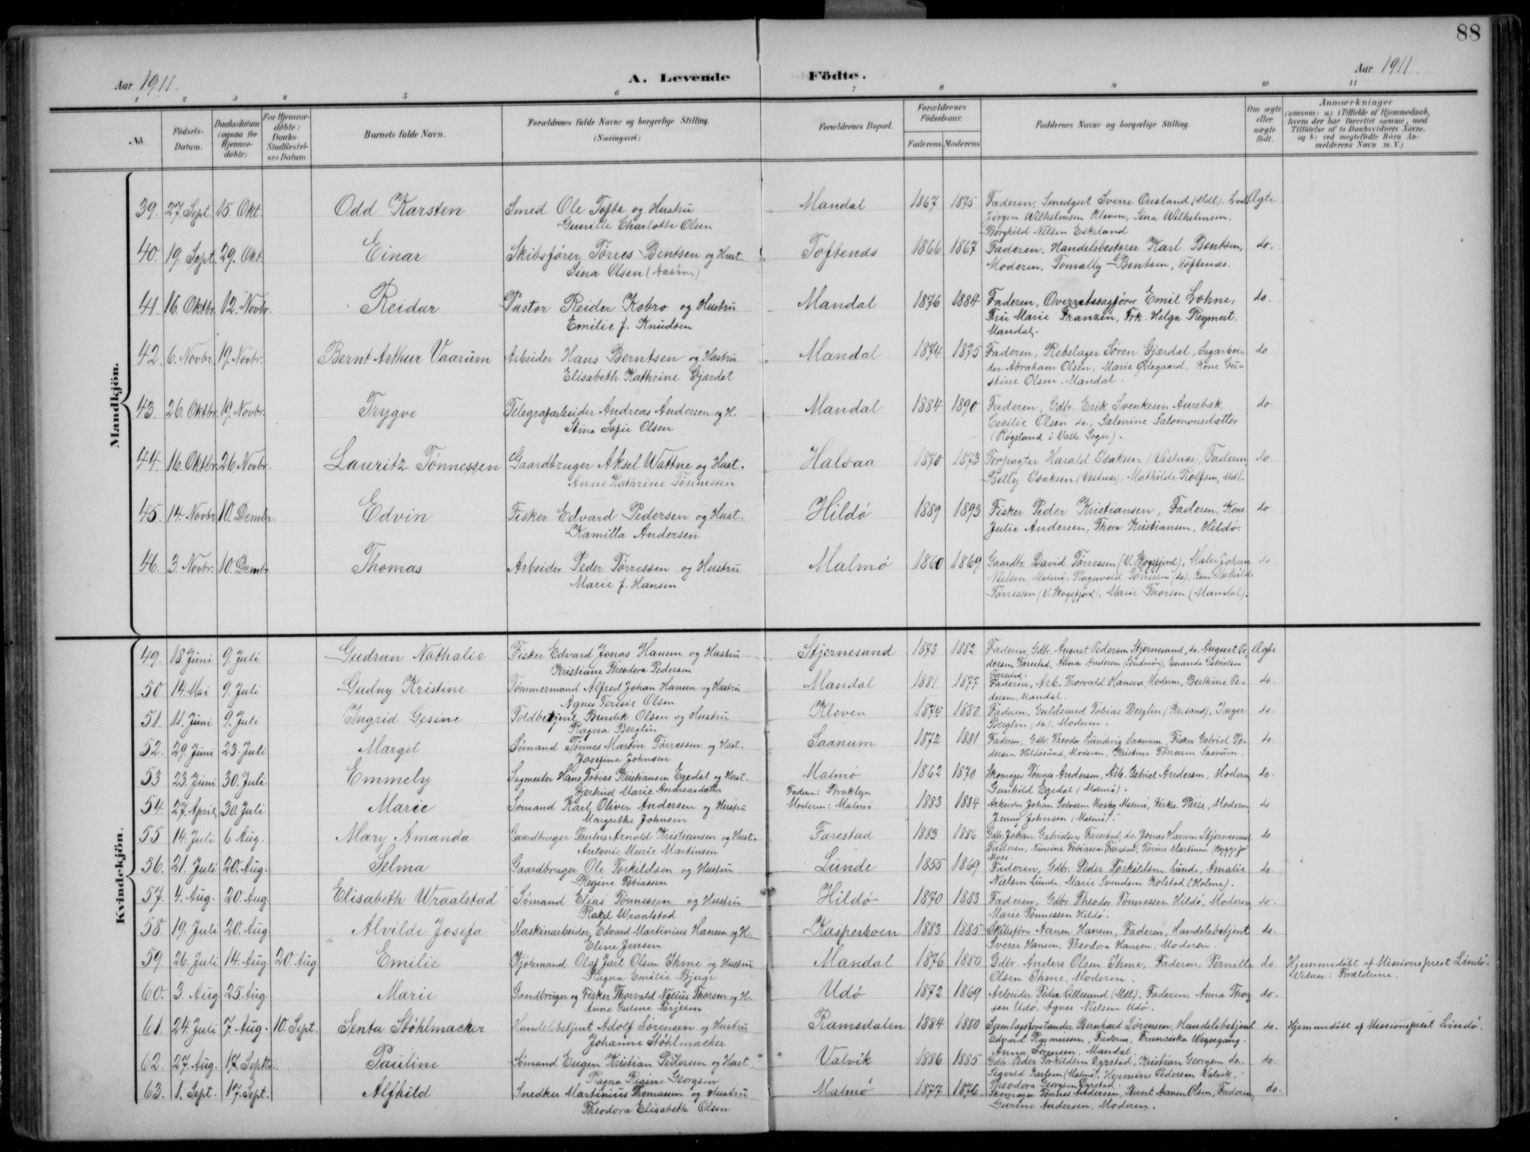 88
Aar 1911.
A. Levende
Födte.
Aar 1911.
1 2 3 4 5 6 7 8 9 10 11
No.
Födsels-Datum.
Daabsdatum (ogsaa for Hjemmedöbte).
For Hjemmedöbte: Daabs-Stadfæstelses Datum
Barnets fulde Navn.
Forældrenes fulde Navne og borgerlige Stilling.
(Næringsvei)
Forældrenes Bopæl.
Forældrenes Födselsaar.
Faderens. Moderens.
Faddernes Navne og borgerlige Stilling.
Om ægte eller uægte födt.
Anmærkninger
Mandkjön.
39. 27. Sept. 15 Okt. Odd Karsten Smed Ole Tofte og Hustru Mandal 1867 1875 Faderen, Smedgut Sverre Omland (Mdl). Ægte
Gunille Charlotte Olsen Jørgen Wilhelmsen Kleven, Sina Wilhelmsen,
Borghild Nilsen Eskeland
40. 19. Sept. 29. Okt. Einar Skibsfører Tørres Bentsen og Hust. Toftenes 1866 1867 Faderen, Handelsbestyrer Karl Bentsen, do.
Sina Olsen Moderen, Tomally Bentsen, Toftenes.
41. 16. Oktbr. 12. Novbr. Reidar Pastor Reider Kobro og Hustru Mandal 1876 1884 Faderen, Overretssagfører Emil Lohne, do.
Emilie f. Knudsen Fru Marie Franzen, Frk. Helga Reymert.
Mandal.
42. 6. Novbr. 19. Novbr. Bernt Arthur Vaarum Arbeider Hans Berntsen og Hustru Mandal 1874 1875 Faderen, Rebslager Søren Gjærdal, Sagarbei- do
Elisabeth Kathrine Gjærdal der Abraham Olsen, Marie Ødegaard, Kone Gu-
stine Olsen, Mandal.
43. 26. Oktbr. 19. Novbr. Trygve Telegrafarbeider Andreas Andersen og H. Mandal 1884 1890 Faderen, Gdbr. Erik Svenksen Aurebek, do.
Stina Sofie Olsen Cecilie Olsen do., Salmine Salomonsdatter
(Røgsland i Valle Sogn).
44. 16. Oktbr. 26. Novbr. Lauritz Tønnessen Gaardbruger Aksel Wattne og Hust. Halsaa 1870 1873 Forpagter Harald Isaksen (Vestnes), Faderen, do.
Anne Kathrine Tønnessen Betty Isaksen (Vestnes), Mathilde Rolfsen, Mdl
45. 14. Novbr. 10. Decmbr. Edvin Fisker Edvard Pedersen og Hust. Hildø 1889 1893 Fisker Peder Kristiansen, Faderen, Kone do
Kamilla Andersen Julie Andersen, Thora Kristiansen, Hildø.
46. 3. Novbr. 10. Decmbr. Thomas Arbeider Peder Tørressen og Hustru Malmø 1860 1869 Gaardbr. David Tørressen (V. Skogsfjord), Maler Johan do
Marie f. Hansen Nielsen Malmø, Ragnvald Tørressen (do), Kone Mathilde
Tørressen (V. Skogsfjord), Marie Thorsen (Mandal).
Kvindekjön.
49. 18. Juni 9. Juli Gudrun Nathalie Fisker Edvard Jonas Hansen og Hustru Stjernesund 1873 1882 Faderen, Gdbr. August Pedersen Stjernesund, do. August Pe- Ægte
Kristiane Theodora Pedersen dersen Farestad, Anna Andersen
50. 14. Mai 9. Juli Gudny Kristine Tømmermand Alfred Johan Hansen og Hustru Mandal 1881 1877 Faderen, Arb. Thorvald Hansen, Moderen, Berthine Pe- do.
Agnes Terese Olsen dersen, Mandal.
51. 11. Juni 9. Juli Ingrid Gesine Toldbetjent Bendik Olsen og Hustru Kleven 1874 1880 Faderen, Guldsmed Tobias Berglin (Kr.sand), Inger do.
Ragna Berglin Berglin (do), Moderen.
52. 29. Juni 23. Juli Margit Sømand Tønnes Martin Tørressen og Hust. Saanum 1872 1881 Faderen, Gdbr. Theodor Lundevig Saanum, Fisker Gabriel Pe- do.
Josefine Johnsen dersen Hildesund, Moderen, Kristine Thorsen Saanum.
53 23. Juni 30. Juli Emmely Sagmester Hans Tobias Kristiansen Egedal og Hust. Malmø 1862 1870 Skomager Tønnes Andersen, Arb. Gabriel Andersen, Moderen, do.
Gjertrud Marie Andreasdatter Gunhild Egedal (Malmø).
54. 27. April 30. Juli Marie Sømand Karl Oliver Andersen og Hustru Faderen: Brooklyn 1883 1884 Arbeider Johan Salvesen Kosby Malmø, Moderen do
Margrethe Johnsen Moderen: Malmø Jenny Johnsen (Malmø).
55 14. Juli 6. Aug. Mary Amanda Gaardbruger Peder Arnold Kristiansen og Hust. Farestad 1883 1886 Gdbr. Johan Gabrielsen Farestad, do. Jonas Hansen Stjernesund do
Antonie Marie Martinsen Faderen,
56. 21. Juli 20. Aug. Selma Gaardbruger Ole Torkildsen og Hustru Lunde 1855 1869 Faderen, Gdbr. Peder Torkildsen Lunde, Amalie do.
Regine Tobiassen Nielsen Lunde, Marie Svendsen Kolstad (Holme).
57. 4. Aug. 20. Aug Elisabeth Wraalstad Sømand Elias Tønnessen og Hustru Hildø 1870 1883 Faderen, Gdbr. Theodor Tønnessen Hildø, Moderen do.
Rakel Wraalstad Marie Tønnessen Hildø.
58. 19. Juli 20. Aug Alvilde Josefa Maskinarbeider Edvard Martinius Hansen og H. Kasperkoen 1883 1885 Skibsfører Aanen Hansen, Faderen, Handelsbetjent do.
Eline Jensen Sverre Hansen, Theodora Hansen, Moderen.
59 26. Juli 14. Aug. 20. Aug Emilie Kjølemand Olaf Juil Olsen Ihme og Hustru Mandal 1876 1880 Gdbr. Anders Olsen Ihme, Faderen, Pernille do. Hjemmedøbt af Missionsprest Lindø.
Magna Emilie Bjerge Olsen Ihme, Moderen. Vidner: Forældrene.
60. 3. Aug 25 Aug Marie Gaardbruger og Fisker Thorvald Nelius Thorsen og H. Udø 1872 1869 Arbeider Peder Lillesund (Mdl), Faderen, Anna Thor- do.
Anne Gurine Torjesen sen Udø, Agnes Nielsen Udø.
61. 24. Juli 7. Aug. 10. Sept. Senta Støhlmacker Handelsbetjent Adolf Sørensen og Hustru Ramsdalen 1884 1880 Samlagsforstander Bernhard Sørensen, Handelsbetjent do. Hjemmedøbt af Missionsprest Lindø.
Johanne Støhlmacker Edvard Rasmussen, Faderen, Franciska Wigegang,
Anna Sørensen, Mandal.
62. 27. Aug. 17. Sept. Pauline Sømand Eugen Kristian Pedersen og Hust. Valvik 1886 1885 Gdbr. Peder Torkildsen Øyestad, Kristian Georgsen do. do.
Ragna Regine Georgsen Sigvald Karlsen (Malmø), Hermine Pedersen Valvik,
Theodora Georgsen Øvestad.
63. 1. Sept. 17. Sept. Alfhild Snedker Martinius Thomassen og Hustru Malmø 1877 1876 Skomager Tønnes Andersen, Stuert Aanen Olsen, Faderen, do.
Theodora Elisabeth Olsen Gurine Andersen, Moderen.